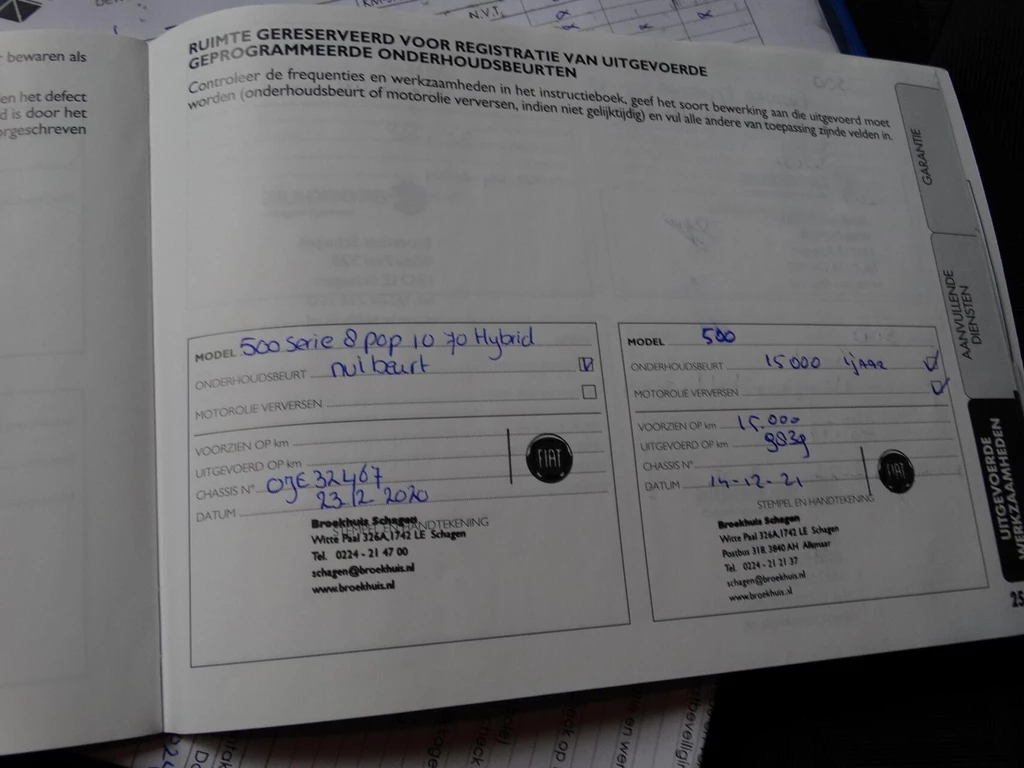 N.V.T.
bewaren als
en het defect
d is door het
orgeschreven
RUIMTE GERESERVEERD VOOR REGISTRATIE VAN UITGEVOERDE
GEPROGRAMMEERDE ONDERHOUDSBEURTEN
Controleer de frequenties en werkzaamheden in het instructieboek, geef het soort bewerking aan die uitgevoerd moet
worden (onderhoudsbeurt of motorolie verversen, indien niet gelijktijdig) en vul alle andere van toepassing zijnde velden in.
GARANTIE
AANVULLENDE
DIENSTEN
UITGEVOERDE
WERKZAAMHEDEN
25
MODEL 500 serie 8 pop 1.0 70 Hybrid
ONDERHOUDSBEURT nulbeurt
MOTOROLIE VERVERSEN
VOORZIEN OP km
UITGEVOERD OP km
CHASSIS N° OJE32467
DATUM 23 12 2020
STEMPEL EN HANDTEKENING
FIAT
Broekhuis Schagen
Witte Paal 326A,1742 LE Schagen
Tel. 0224 - 21 47 00
schagen@broekhuis.nl
www.broekhuis.nl
MODEL 500
ONDERHOUDSBEURT 15000 1jaar
MOTOROLIE VERVERSEN
VOORZIEN OP km 15.000
UITGEVOERD OP km 9839
CHASSIS N°
DATUM 14-12-21
STEMPEL EN HANDTEKENING
FIAT
Broekhuis Schagen
Witte Paal 326A,1742 LE Schagen
Postbus 318, 3840 AH
Tel. 0224 - 21 21 37
schagen@broekhuis.nl
www.broekhuis.nl